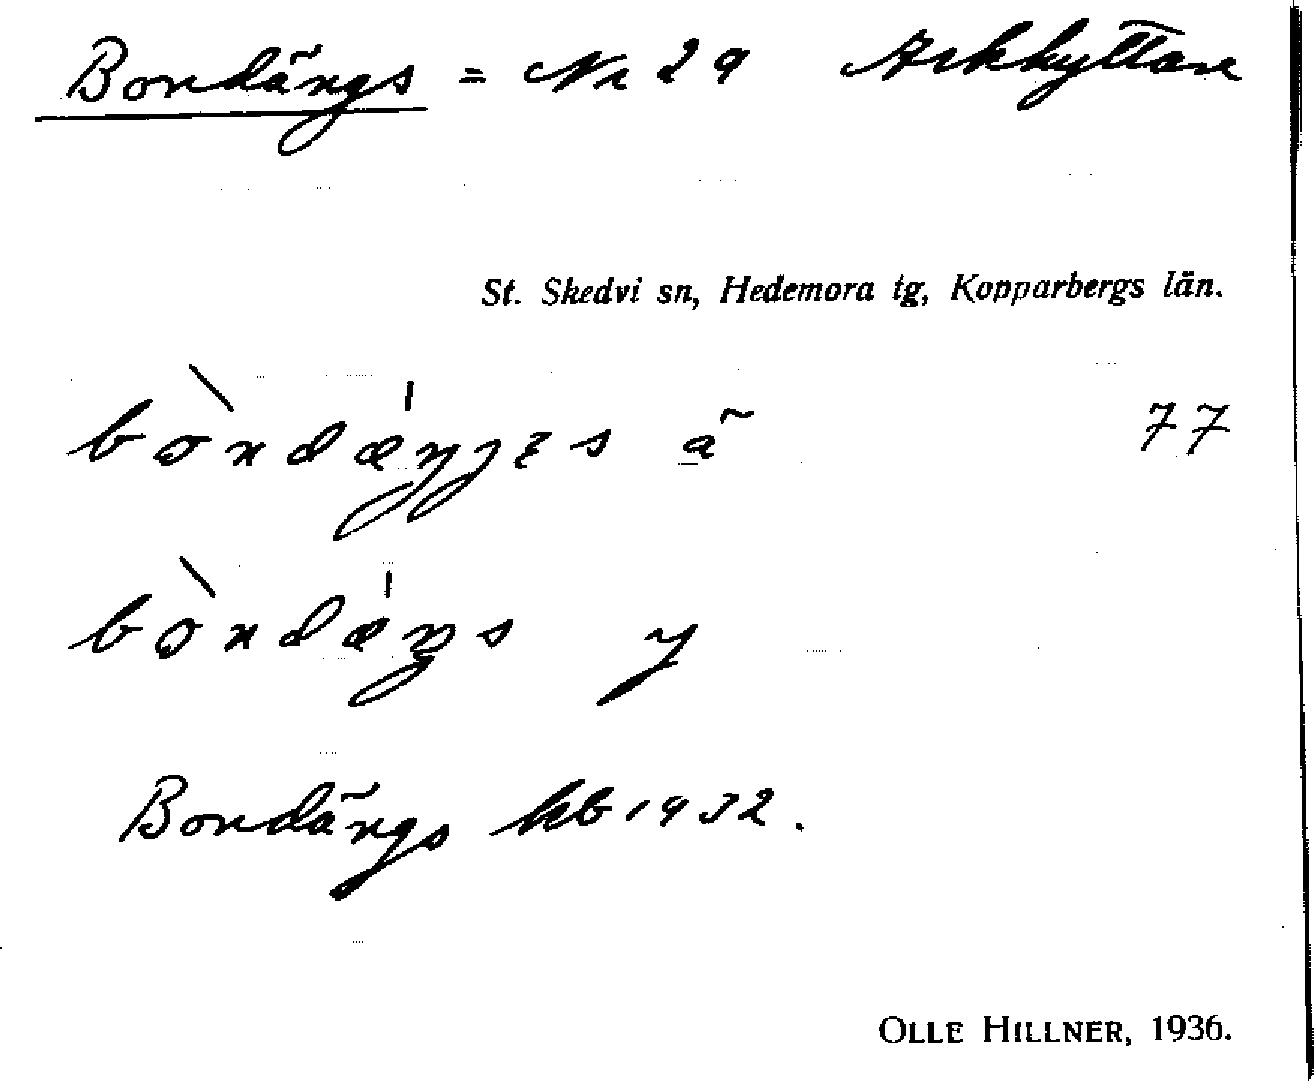 Bondängs = Nr 29 Arkhyttan
St. Skedvi sn, Hedemora tg, Kopparbergs län.
bòndæŋŋɛs ä 77
bòndæŋs y
Bondängs kb 1932.
OLLE HILLNER, 1936.